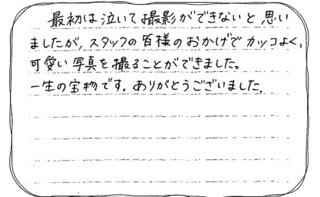 最初は泣いて撮影ができないと思い
ましたが、スタッフの皆様のおかげでカッコよく、
可愛い写真を撮ることができました。
一生の宝物です。ありがとうございました。